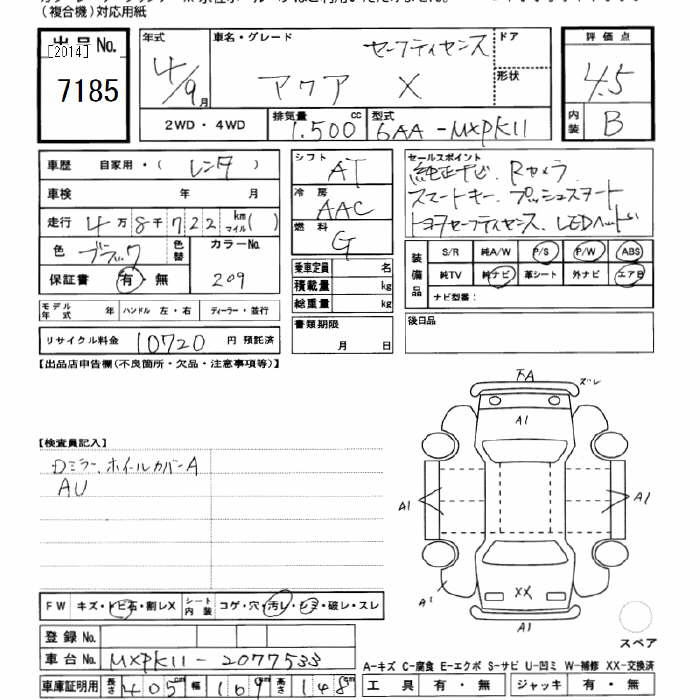 (複合機)対応用紙
出品 No.
[2014]
7185
年式
4/9月
車名・グレード
セーフティセンス
アクア X
ドア
形状
評価点
4.5
内装
B
2WD・4WD
排気量
1.500 cc
型式
6AA-MXPK11
車歴 自家用・(レンタ)
車検 年 月
走行 4万8千722 km マイル( )
色 ブラック 色替
カラーNo.
209
保証書 有・無
シフト AT
冷房 AAC
燃料 G
乗車定員 名
積載量 kg
総重量 kg
書類期限
月 日
セールスポイント
純正ナビ、Rカメラ
スマートキー、プッシュスタート
トヨタセーフティセンス、LEDヘッド
装備品
S/R 純A/W P/S P/W ABS
純TV 純ナビ 革シート 外ナビ エアB
ナビ型番:
後日品
モデル年式 年 ハンドル 左・右 ディーラー・並行
リサイクル料金 10720 円 預託済
【出品店申告欄(不良箇所・欠品・注意事項等)】
【検査員記入】
Dミラー、ホイールカバーA
AU
FW キズ・トビ石・割レX シート内装 コゲ・穴・汚レ・シミ・破レ・スレ
登録 No.
車台 No. MXPK11-2077533
車庫証明用 長さ 405 cm 幅 169 cm 高さ 148 cm
下A
ズレ
A1
A1
A1
A1
XX
A1
A1
スペア
A-キズ C-腐食 E-エクボ S-サビ U-凹ミ W-補修 XX-交換済
工具 有・無 ジャッキ 有・無